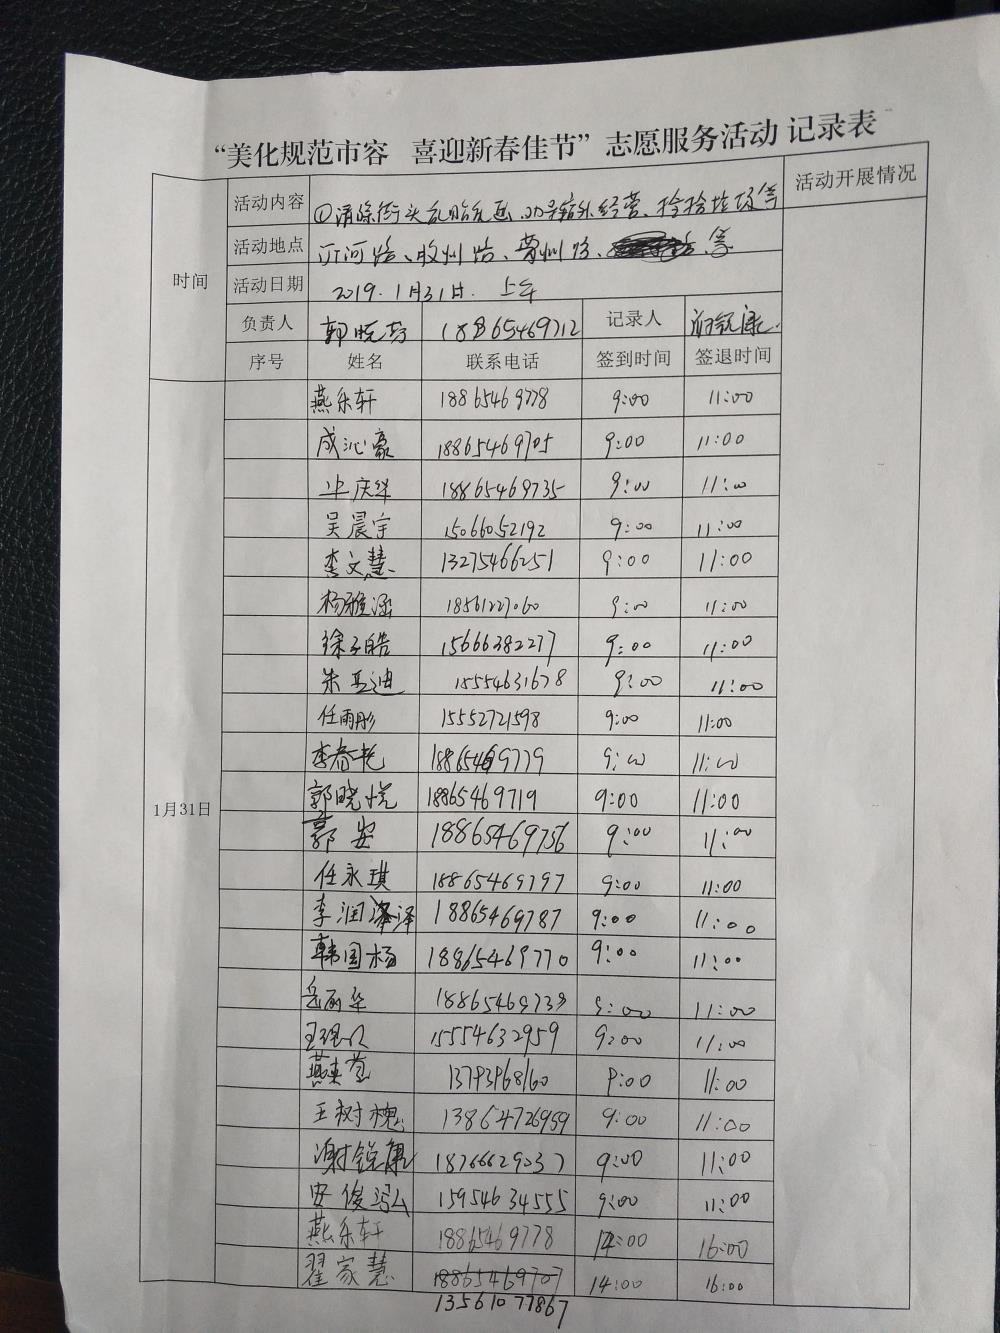 “美化规范市容 喜迎新春佳节”志愿服务活动 记录表
时间 活动内容 ①清除街头乱贴乱画、劝导店外经营、捡拾垃圾等 活动开展情况
活动地点 汀河路、胶州路、莒州路、等
活动日期 2019.1月31日. 上午
负责人 郭晓芳 18865469712 记录人 谢锐康
序号 姓名 联系电话 签到时间 签退时间
1月31日
燕乐轩 18865469778 9:00 11:00
成沁豪 18865469705 9:00 11:00
毕庆华 18865469735 9:00 11:00
吴晨宇 15066052192 9:00 11:00
李文慧 13275466251 9:00 11:00
杨雅涵 18561227060 9:00 11:00
徐子皓 15666382277 9:00 11:00
朱孟迪 15554631678 9:00 11:00
任雨彤 15552721598 9:00 11:00
李春艳 18865469779 9:00 11:00
郭晓悦 18865469719 9:00 11:00
郭安 18865469756 9:00 11:00
任永琪 18865469797 9:00 11:00
李润泽 18865469787 9:00 11:00
韩国杨 18865469770 9:00 11:00
岳丽华 18865469739 9:00 11:00
15554632959 9:00 11:00
13793968160 9:00 11:00
王树槐 13864726959 9:00 11:00
谢锐康 18766629037 9:00 11:00
安俊 15954634555 9:00 11:00
燕乐轩 18865469778 14:00 16:00
翟家慧 18865469707 14:00 16:00
13561077867